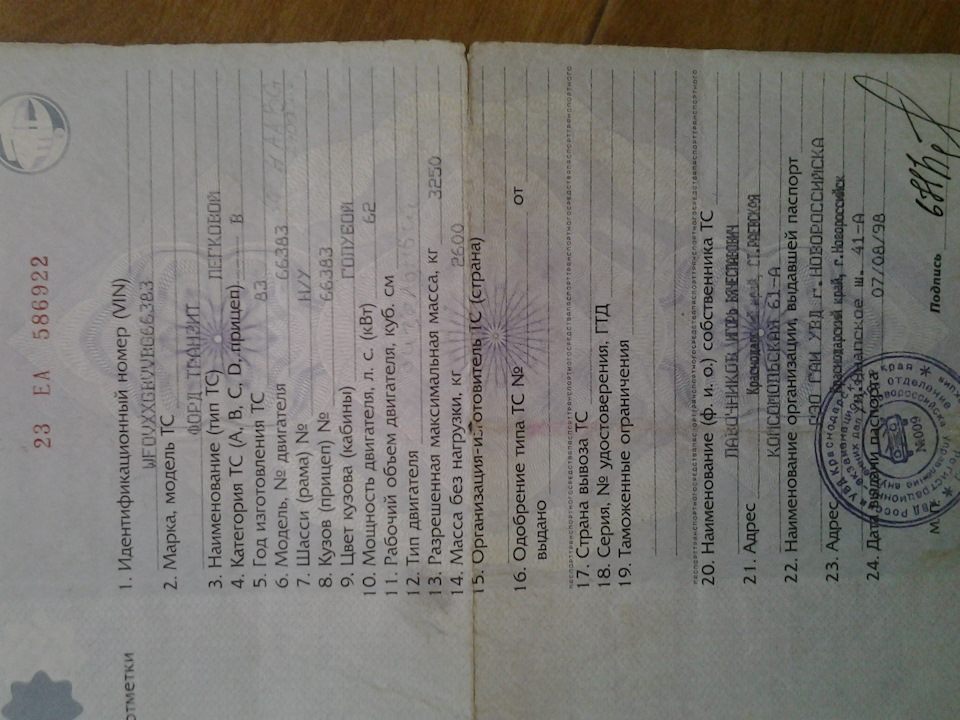 23 ЕА 586922
1. Идентификационный номер (VIN)
WF0VXXGBVVDG66383
2. Марка, модель ТС
ФОРД ТРАНЗИТ
3. Наименование (тип ТС) ЛЕГКОВОЙ
4. Категория ТС (А, В, С, D, прицеп) В
5. Год изготовления ТС 83
6. Модель, № двигателя 66383
7. Шасси (рама) № Н/У
8. Кузов (прицеп) № 66383
9. Цвет кузова (кабины) ГОЛУБОЙ
10. Мощность двигателя, л. с. (кВт) 62
11. Рабочий объем двигателя, куб. см
12. Тип двигателя
13. Разрешенная максимальная масса, кг 3250
14. Масса без нагрузки, кг 2600
15. Организация-изготовитель ТС (страна)
16. Одобрение типа ТС № от
выдано
17. Страна вывоза ТС
18. Серия, № удостоверения, ГТД
19. Таможенные ограничения
20. Наименование (ф. и. о.) собственника ТС
ВЯЧЕСЛАВОВИЧ
21. Адрес Краснодарский край, СТ.РАЕВСКАЯ
КОМСОМОЛЬСКАЯ 61-А
22. Наименование организации, выдавшей паспорт
РЭО ГАИ УВД г.НОВОРОССИЙСКА
23. Адрес Краснодарский край, г.Новороссийск
ш. 41-А
24. Дата выдачи паспорта 07/08/98
М.П. Подпись
отметки
№009